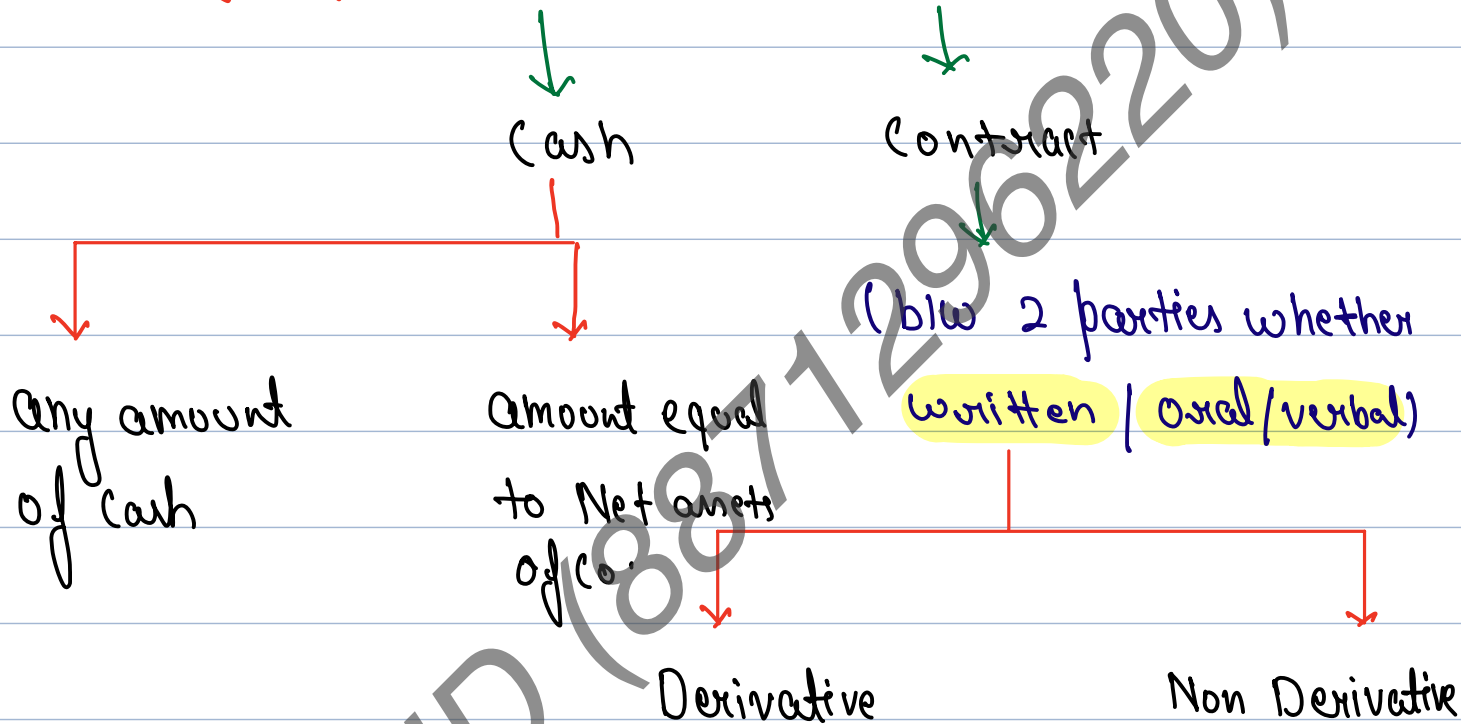 Cash
Contract
(b/w 2 parties whether
written / oral/verbal)
any amount
of cash
amount equal
to Net assets
of co.
Derivative
Non Derivative
D (8871296220)